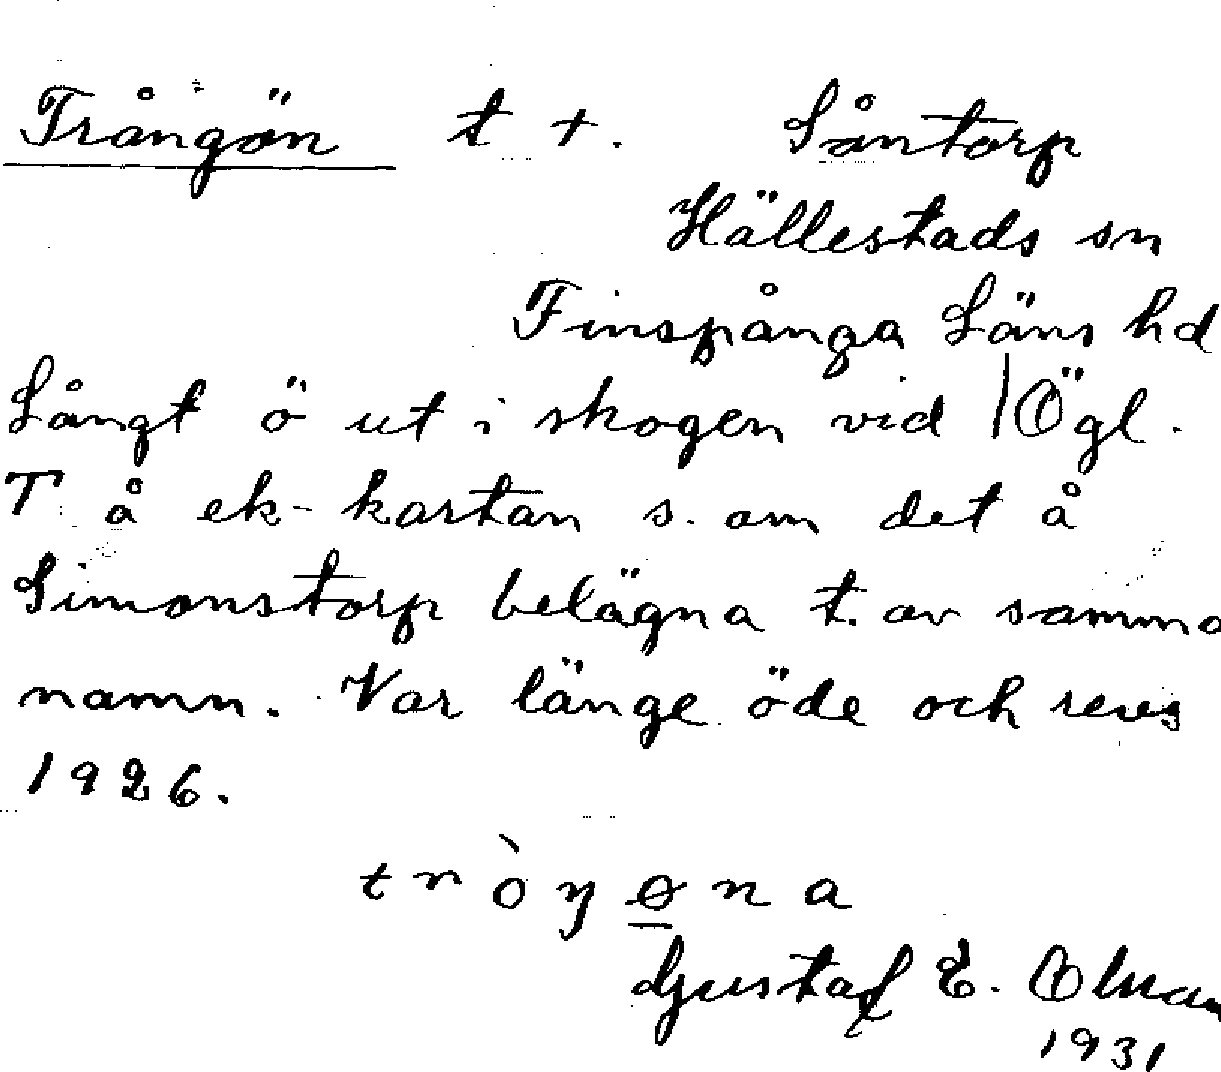 Trångön t +. Såntorp
Hällestads sn
Finspånga Läns hd
Långt ö ut i skogen vid | Ögl.
T. å ek-kartan s. om det å
Simonstorp belägna t. av samma
namn. Var länge öde och revs
1926.
tròŋøna
Gustaf E. Olman
1931